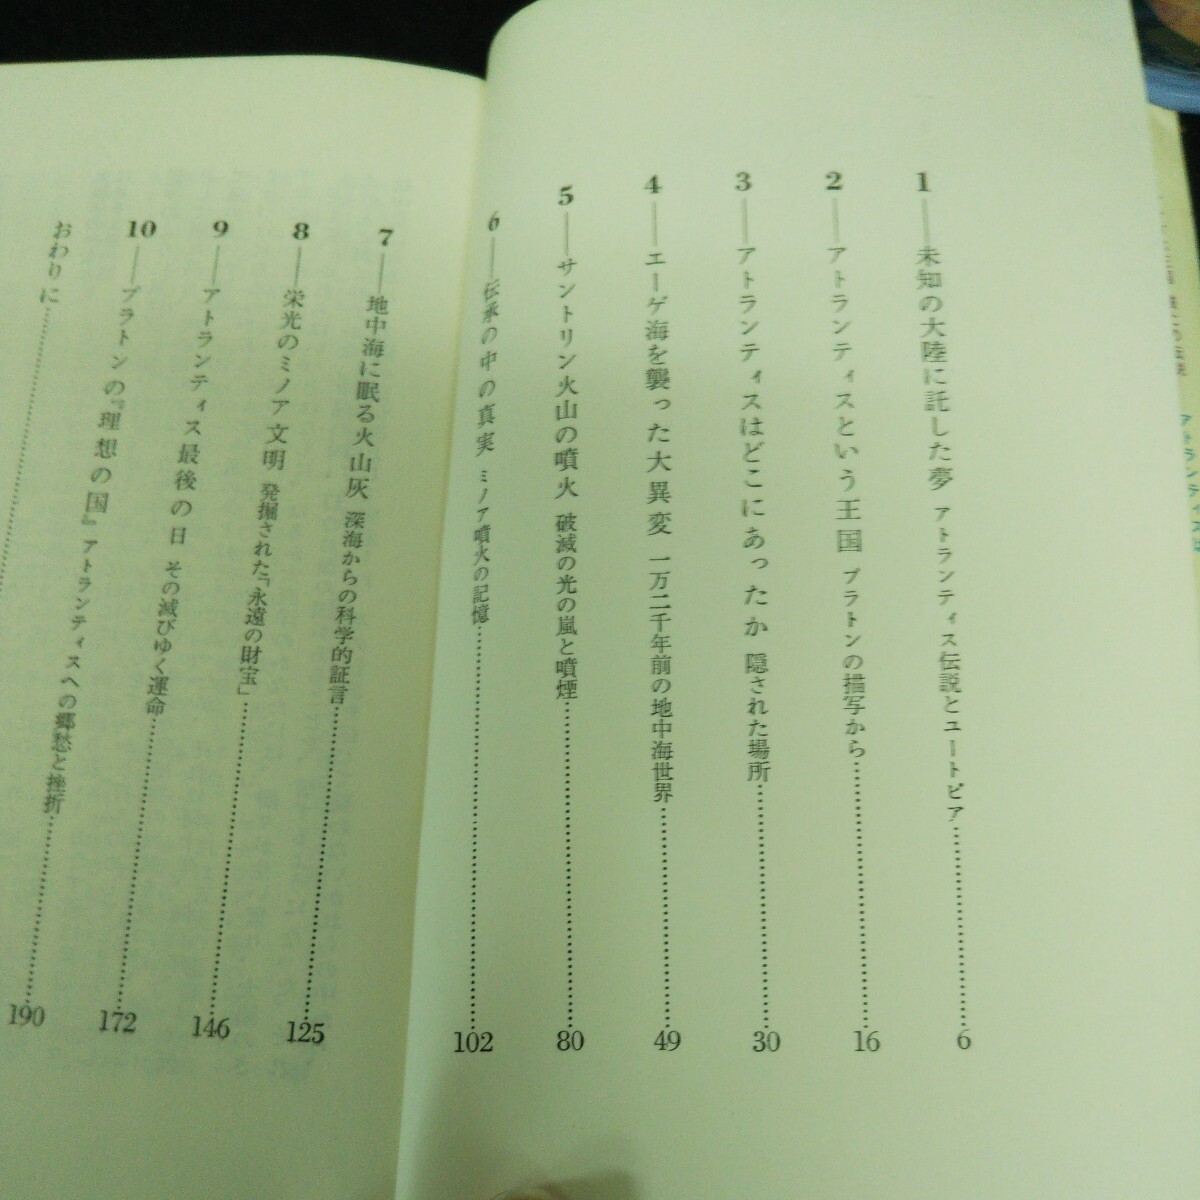 1——未知の大陸に託した夢 アトランティス伝説とユートピア……………6
2——アトランティスという王国 プラトンの描写から……………16
3——アトランティスはどこにあったか 隠された場所……………30
4——エーゲ海を襲った大異変 一万二千年前の地中海世界……………49
5——サントリン火山の噴火 破滅の光の嵐と噴煙……………80
6——伝承の中の真実 ミノア噴火の記憶……………102
7——地中海に眠る火山灰 深海からの科学的証言……………125
8——栄光のミノア文明 発掘された「永遠の財宝」……………146
9——アトランティス最後の日 その滅びゆく運命……………172
10——プラトンの『理想の国』 アトランティスへの郷愁と挫折……………190
おわりに……………